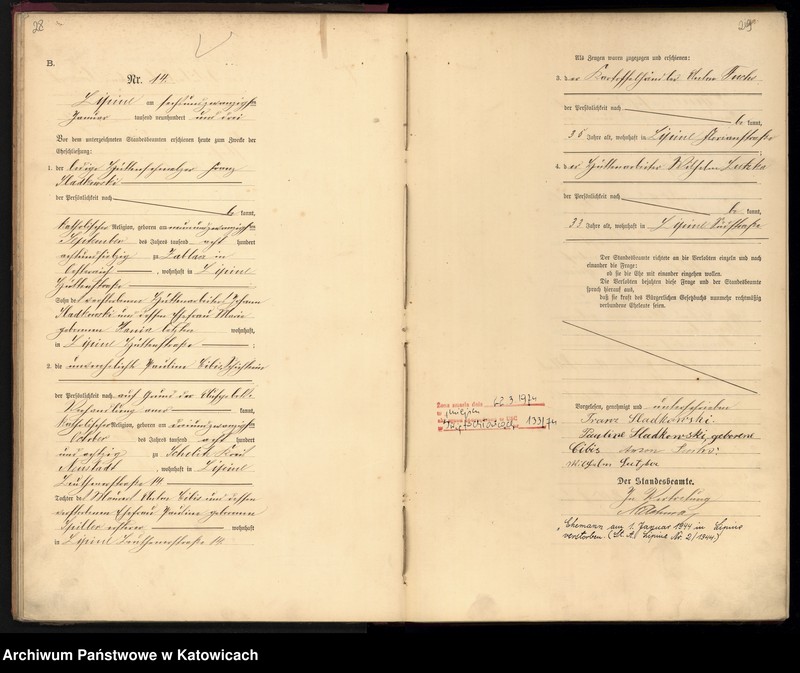 28
B.
Nr. 14.
Lipine am sechsundzwanzigsten
Januar tausend neunhundert und drei
Vor dem unterzeichneten Standesbeamten erschienen heute zum Zwecke der
Eheschließung:
1. der ledige Hüttenschmelzer Franz
Sladkowski
der Persönlichkeit nach
be kannt,
katholischer Religion, geboren am neunundzwanzigsten
September des Jahres tausend acht hundert
achtundsiebzig zu
Österreich, wohnhaft in Lipine
Hüttenstraße
Sohn des verstorbenen Hüttenarbeiters Johann
Sladkowski und dessen Ehefrau Marie
geborenen wohnhaft,
in Lipine Hüttenstraße;
2. die unverehelichte Pauline Cibis
der Persönlichkeit nach auf Grund der Aufgebots
Verhandlung aner kannt,
katholischer Religion, geboren am dreiundzwanzigsten
October des Jahres tausend acht hundert
und achtzig zu Kreis
Neustadt, wohnhaft in Lipine
Beuthenerstraße 14
Tochter des Cibis und dessen
verstorbenen Ehefrau Pauline geborenen
wohnhaft
in Lipine Beuthenerstraße 14.
29
Als Zeugen waren zugezogen und erschienen:
3. der Kartoffelhändler Anton
der Persönlichkeit nach
be kannt,
36 Jahre alt, wohnhaft in Lipine
4. der Hüttenarbeiter Wilhelm
der Persönlichkeit nach
be kannt,
33 Jahre alt, wohnhaft in Lipine
Der Standesbeamte richtete an die Verlobten einzeln und nach
einander die Frage:
ob sie die Ehe mit einander eingehen wollen.
Die Verlobten bejahten diese Frage und der Standesbeamte
sprach hierauf aus,
daß sie kraft des Bürgerlichen Gesetzbuchs nunmehr rechtmäßig
verbundene Eheleute seien.
133/74
Vorgelesen, genehmigt und unterschrieben
Franz Sladkowski.
Pauline Sladkowski, geborene
Cibis
Wilhelm
Der Standesbeamte.
In Vertretung
Ehemann am 1. Januar 1944 in Lipine
verstorben. (St. A. Lipine Nr. 2/1944.)
Archiwum Państwowe w Katowicach